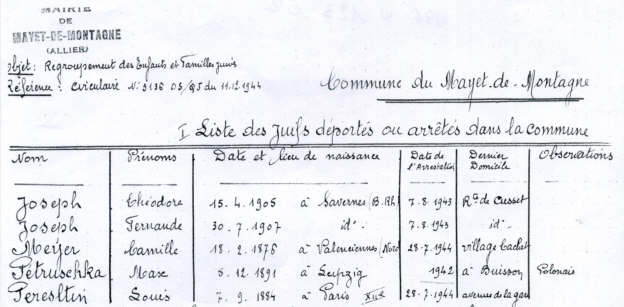 MAIRIE
DE
MAYET-DE-MONTAGNE
(ALLIER)
Objet: Regroupement des Enfants et Familles juives
Référence: Circulaire N° 5136 DS/QJ du 11.12.1944
Commune du Mayet-de-Montagne
I Liste des juifs déportés ou arrêtés dans la commune
Nom Prénoms Date et lieu de naissance Date de l'Arrestation Dernier Domicile Observations
Joseph Théodore 15.4.1905 à Savernes (B.Rh) 7.8.1943 Rte de Cusset
Joseph Fernande 30.7.1907 id°- 7.8.1943 id°-
Meyer Camille 18.2.1876 à Valenciennes (Nord) 28.7.1944 village Cachet
Petruschka Max 8.12.1891 à Leipzig 1942 à Buisson Polonais
Louis 7.9.1884 à Paris 28.7.1944 avenue de la gare